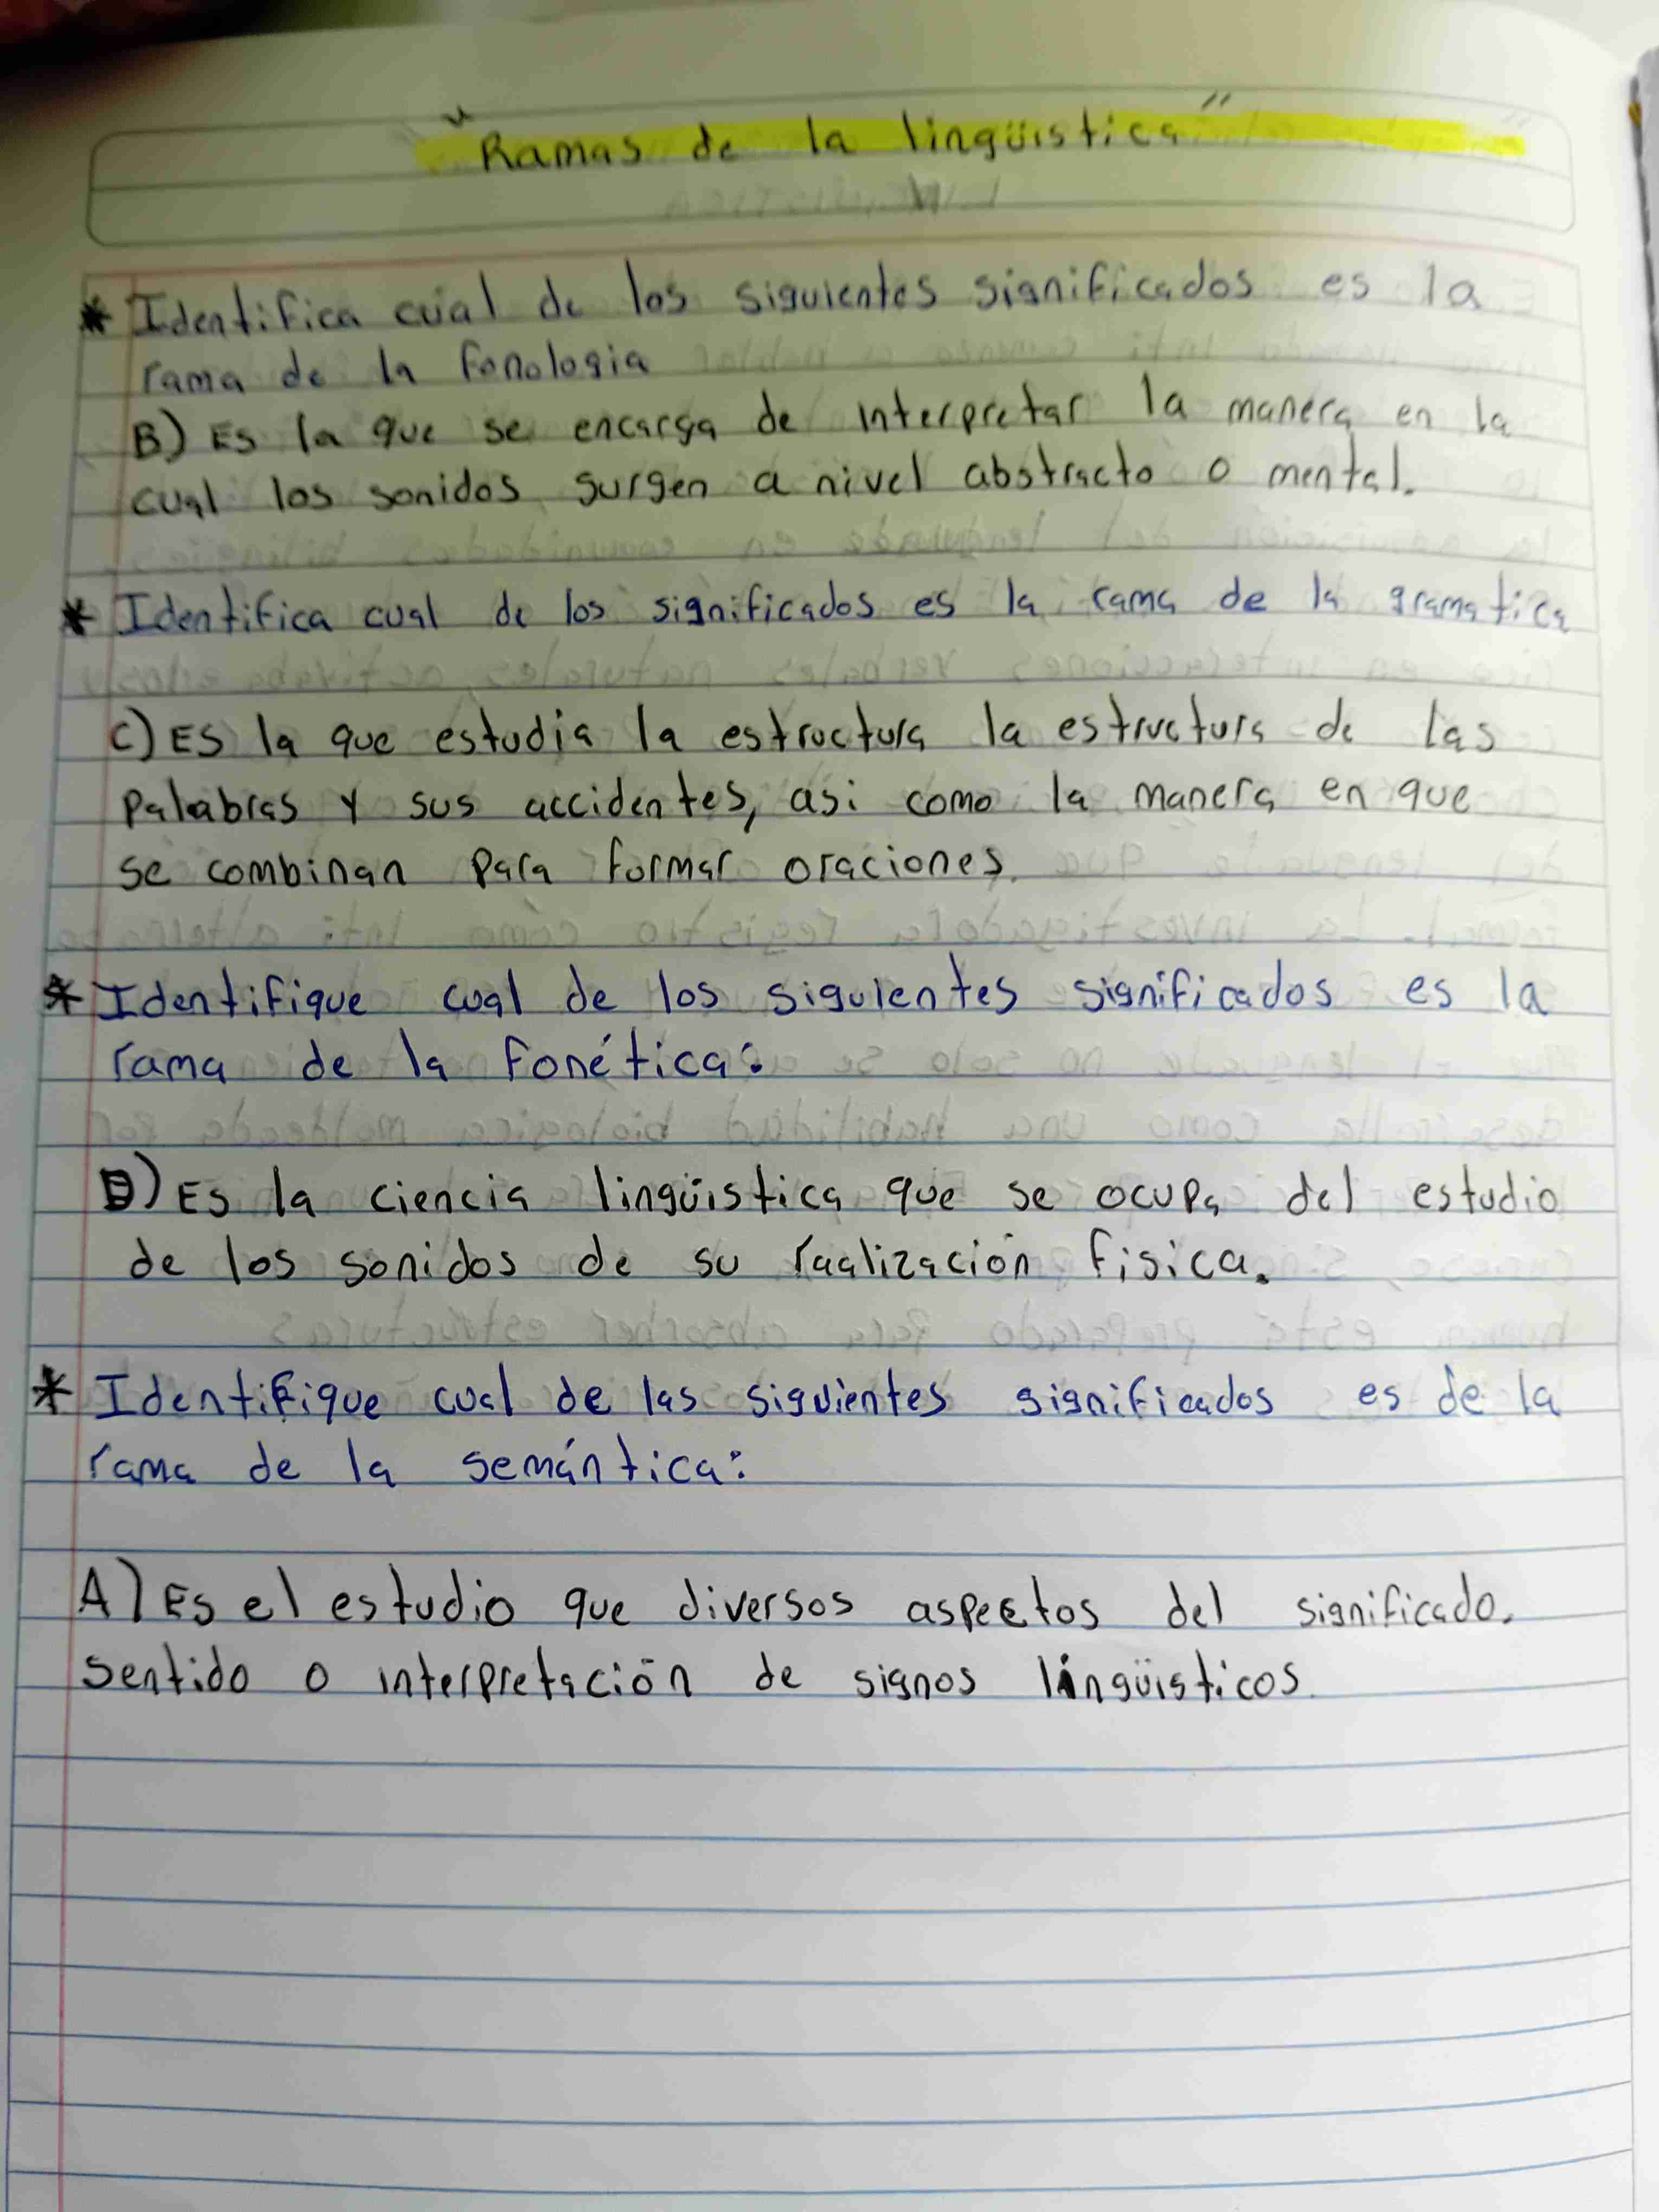 "Ramas de la lingüistica"
* Identifica cúal de los siguientes significados es la
rama de la fonologia
B) Es la que se encarga de interpretar la manera en la
cual los sonidos surgen a nivel abstracto o mental.
* Identifica cual de los significados es la rama de la gramatica
C) Es la que estudia la estructura la estructura de las
palabras y sus accidentes, asi como la manera en que
se combinan para formar oraciones.
* Identifique cual de los siguientes significados es la
rama de la fonética:
D) Es la ciencia lingüistica que se ocupa del estudio
de los sonidos de su raalización fisica.
* Identifique cual de las siguientes significados es de la
rama de la semántica:
A) Es el estudio que diversos aspectos del significado.
sentido o interpretación de signos lingüisticos.